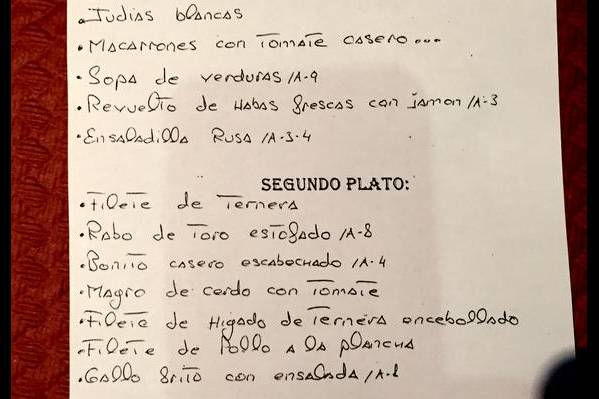 • Judias blancas
• Macarrones con Tomate casero...
• Sopa de verduras /A-9
• Revuelto de Habas frescas con jamon /A-3
• Ensaladilla Rusa /A-3-4
SEGUNDO PLATO:
• Filete de Ternera
• Rabo de Toro estofado /A-8
• Bonito casero escabechado /A-4
• Magro de cerdo con Tomate
• Filete de Higado de Ternera encebollado
• Filete de Pollo a la plancha
• Gallo frito con ensalada /A-1